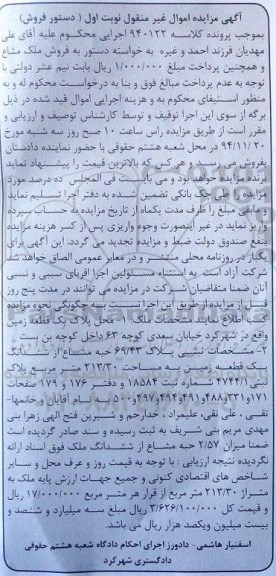 آگهی مزایده اموال غیر منقول نوبت اول ( دستور فروش)
بموجب پرونده کلاسه ۹۴۰۱۲۲ اجرایی محکوم علیه آقای علی
مهدیان فرزند احمد و غیره به خواسته دستور به فروش ملک مشاع
و همچنین پرداخت مبلغ ۱/۰۰۰/۰۰۰ ریال بابت نیم عشر دولتی با
توجه به عدم پرداخت مبالغ فوق و بنا به درخواست محکوم له و به
منظور استیفای محکوم به و هزینه اجرایی اموال قید شده در ذیل
برگه از سوی این اجرا توقیف و توسط کارشناس توصیف و ارزیابی و
مقرر است از طریق مزایده راس ساعت ۱۰ صبح روز سه شنبه مورخ
۹۴/۱۱/۲۰ در محل شعبه هشتم حقوقی با حضور نماینده دادستان
بفروش می رسد و هر کس که بالاترین قیمت را پیشنهاد نماید
برنده مزایده خواهد بود و می بایست فی المجلس ده درصد مورد
مزایده را طی چک بانکی تضمین شده به دفتر اجرا تسلیم نماید
و مابقی مبلغ را ظرف مدت یکماه از تاریخ مزایده به حساب سپرده
واریز نماید در غیر اینصورت وجوه واریزی پس از کسر هزینه مزایده
بنفع صندوق دولت ضبط و مزایده تجدید می گردد. این آگهی برای
یکبار در روزنامه محلی منتشر و در معابر عمومی الصاق خواهد شد
شرکت آزاد است به استثناء مسئولین اجرا اقربای سببی و نسبی
آنان ضمنا متقاضیان شرکت در مزایده می توانند در مدت پنج روز
قبل از مزایده از طریق این اجرا نسبت به چگونگی نحوه مزایده
کسب اطلاع نمایند. مشخصات ملک: ۱- محل پلاک یک قطعه زمین
واقع در شهرکرد خیابان سعدی کوچه ۶۳ داخل کوچه بن بست
۲- مشخصات ثبتی پلاک ۶۹/۴۳ حبه مشاع از ششدانگ
یک قطعه زمین به مساحت ۲۱۳/۳۰ متر مربع پلاک
ثبتی ۴۷۴۴/۱ شماره ثبت ۱۸۵۸۴ و دفتر ۱۷۶ و ۱۷۹ صفحات
۱۷۱و۳۳۱و۴۸۸و۴۹۱و۴۹۴و۴۹۷و۵۰۰ به نام آقایان و خانمها:
تقی، علی نقی، علیمراد، خدارحم و شیرین فتح الهی زهرا بنی
مهدی مریم بنی شریف به ثبت رسیده و سند صادر گردیده است
ضمنا میزان ۲/۵۷ حبه مشاع از ششدانگ ملک فوق اسناد ارائه
نگردیده نتیجه ارزیابی : با توجه به قیمت روز و عرف محل و سایر
شاخص های اقتصادی کنونی و جمیع جهات ارزش پایه ملک به
متراژ ۲۱۳/۳۰ متر مربع از قرار هر متر مربع ۱۷/۰۰۰/۰۰۰ ریال
و قیمت کل ۳/۶۲۶/۱۰۰/۰۰۰ مبلغ سه میلیارد و ششصد و
بیست میلیون ویکصد هزار ریال می باشد.
اسفندیار هاشمی- دادورز اجرای احکام دادگاه شعبه هشتم حقوقی
دادگستری شهرکرد